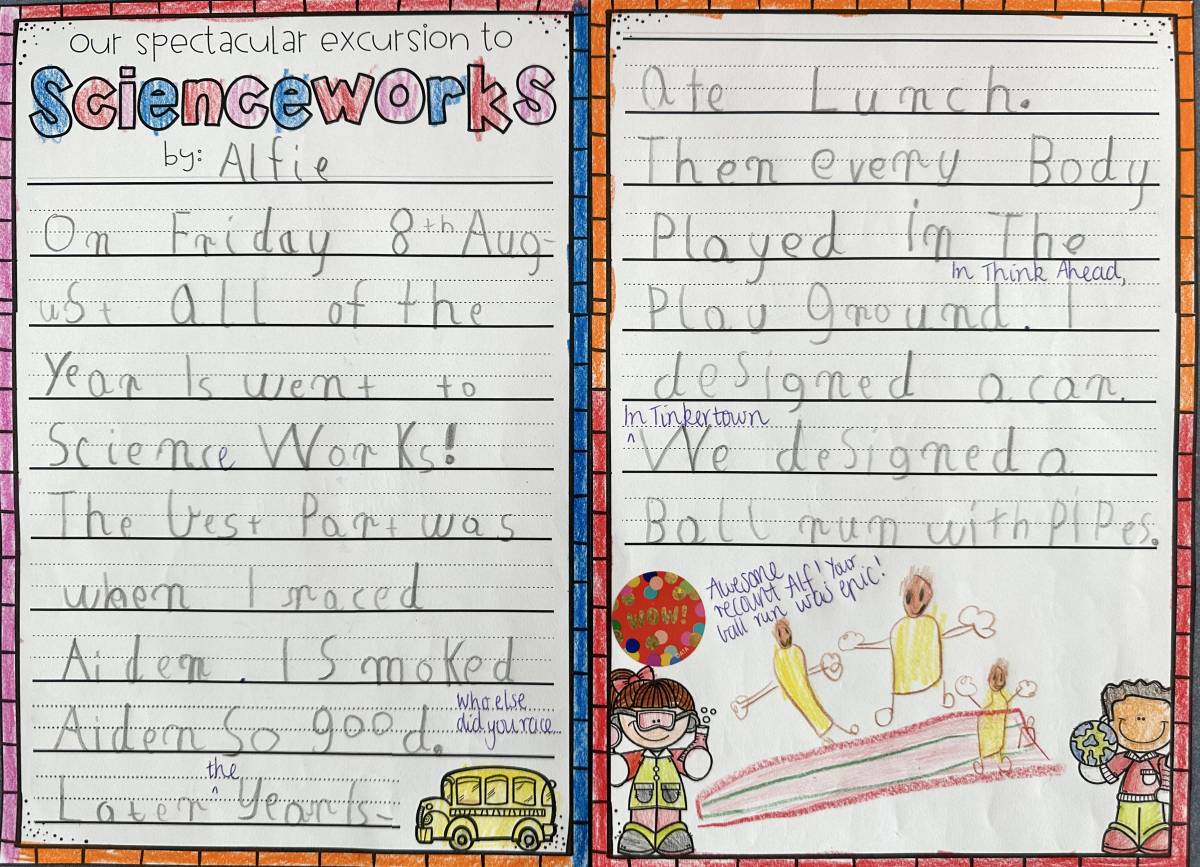 our spectacular excursion to
Scienceworks
by: Alfie
On Friday 8th Aug-
ust all of the
Year 1s went to
Science Works!
The best Part was
when I raced
Aiden. I Smoked
Aiden So good.
who else
did you race...
the
Later ^ Year 1s-
Ate Lunch.
Then every Body
Played in The
In Think Ahead,
Play Ground. I
designed a car.
In Tinkertown
^ We designed a
Ball run with PiPes.
WOW!
Awesome
recount Alf! Your
ball run was epic!